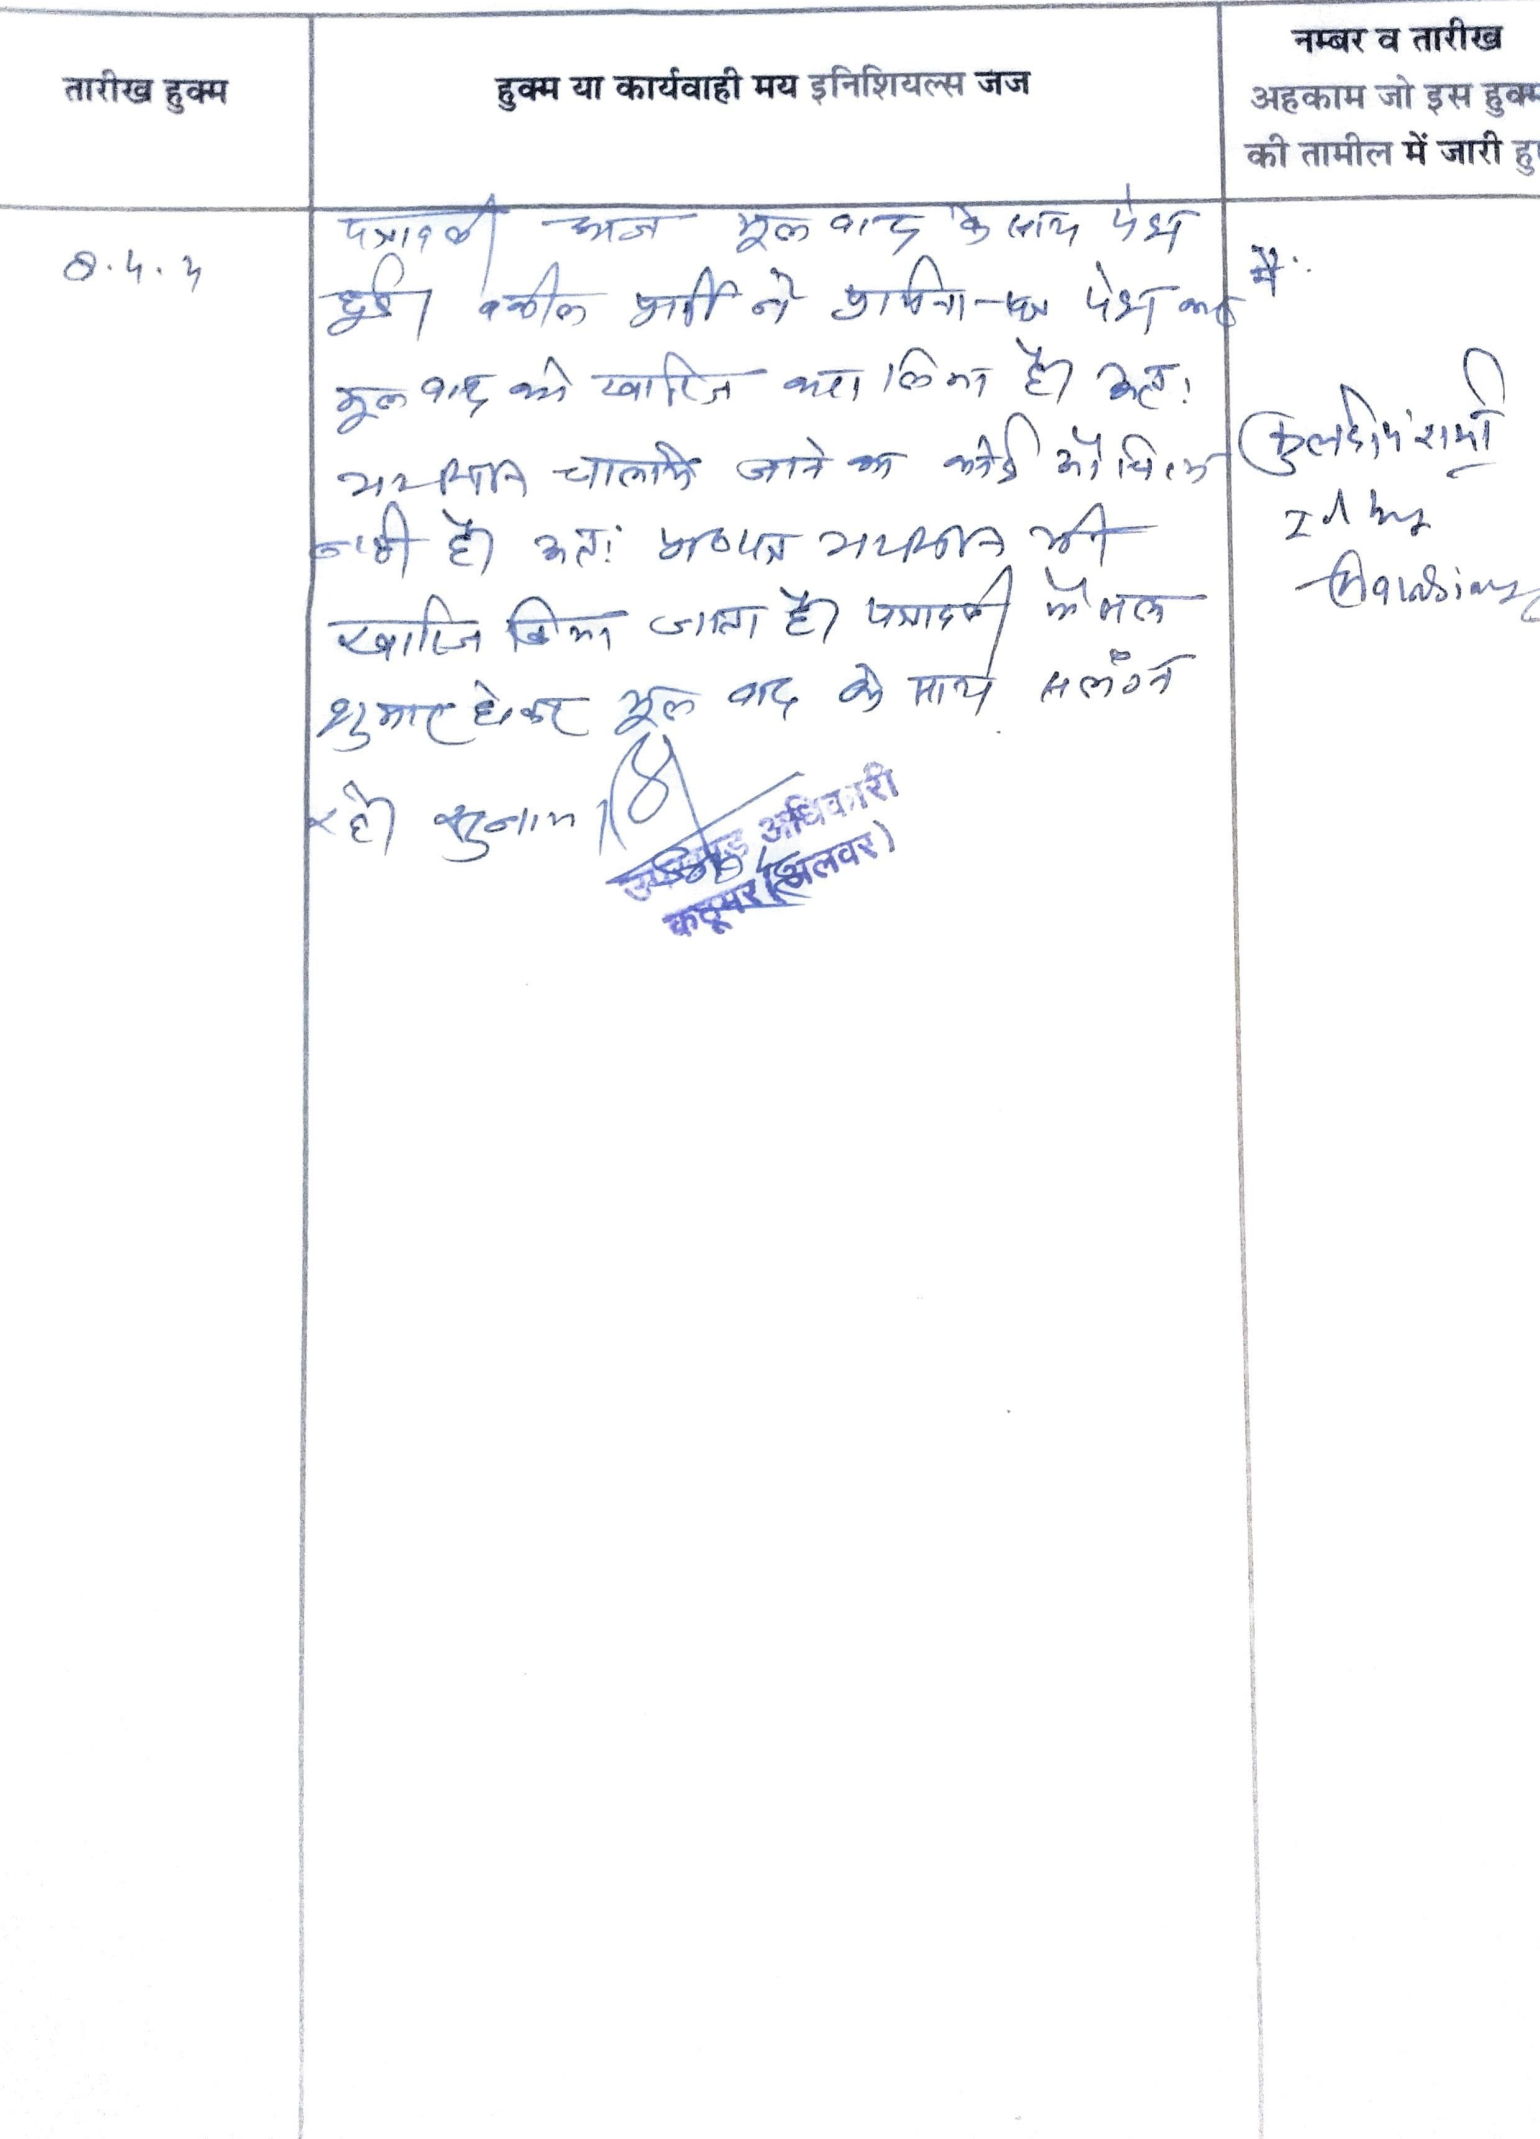 तारीख हुक्म
हुक्म या कार्यवाही मय इनिशियल्स जज
नम्बर व तारीख
अहकाम जो इस हुक्म
की तामील में जारी हु
8.4.
पत्रावली आज मूल वाद के साथ पेश
हुई। वकील प्रार्थी ने प्रार्थना-पत्र पेश कर
मूल वाद को खारिज करा लिया है। अतः
चलाये जाने का कोई औचित्य
नहीं है। अतः प्रा०पत्र भी
खारिज किया जाता है। पत्रावली फैसल
शुमार होकर मूल वाद के साथ सलंग्न
रहे।
उपखण्ड अधिकारी
कठूमर (अलवर)
मैं
कुलदीप शर्मा